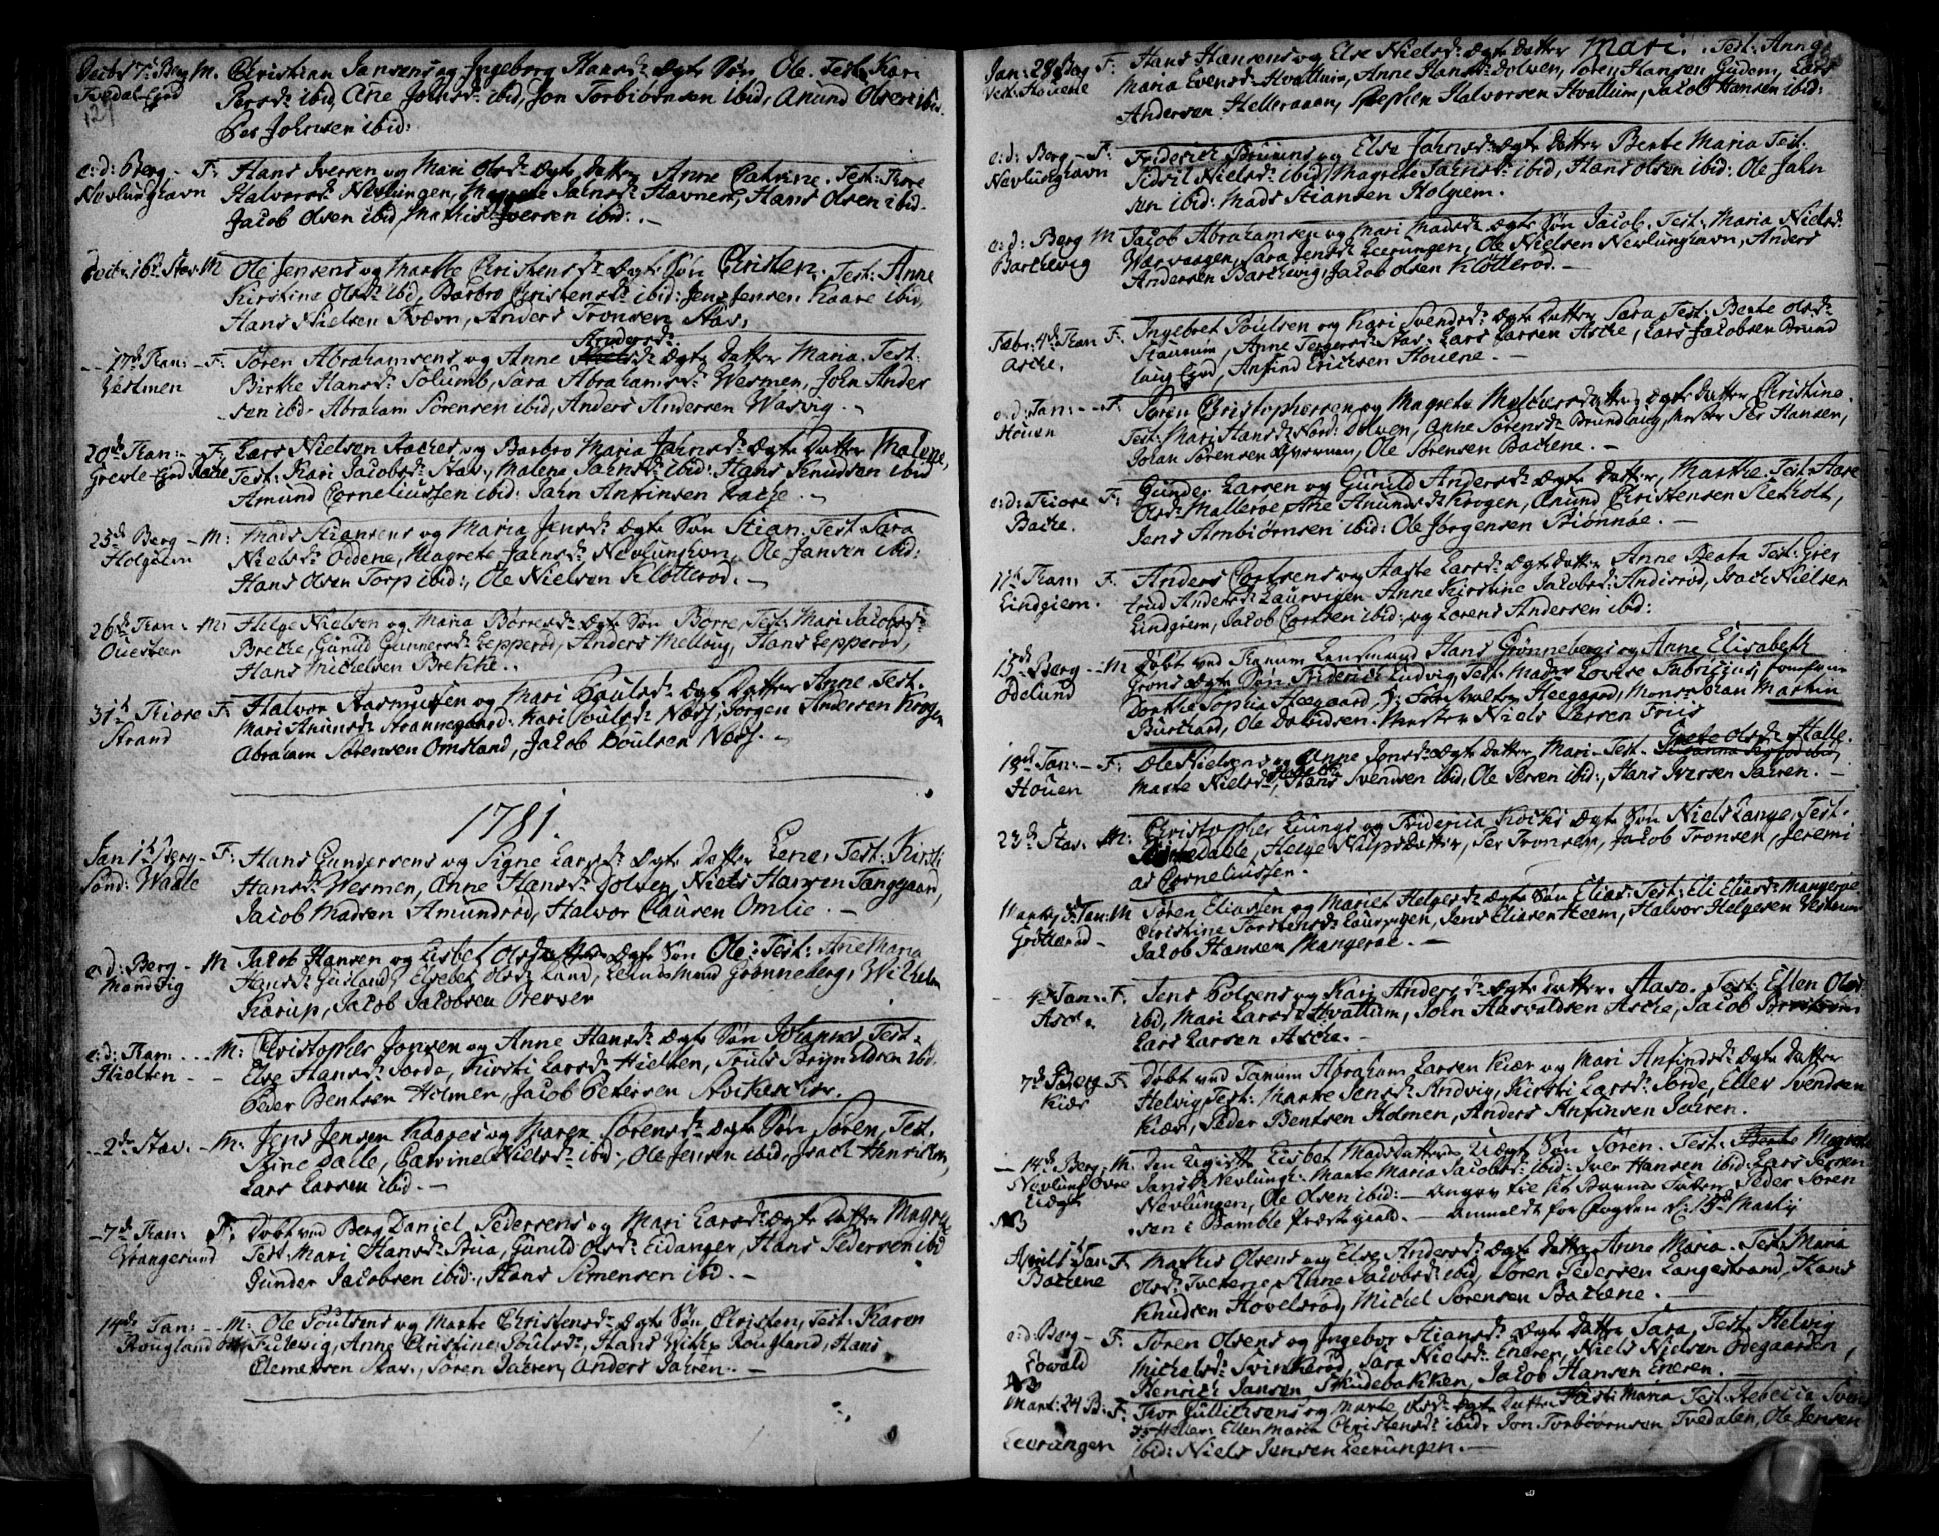 Christian Jansens og Ingeborg Hansd: Ægte Søn Ole. Test: Kari
Tvedal Ejed
Persd: ibid, Ane Johnsd: ibid, Jon Torbiörnsen ibid, Anund Olsen ibid.
Per Johnsen ibid:
e:d: Berg - F: Hans Iversen og Mari Olsd: Ægte Datter Anne Catrine. Test: Tore
Nevlunghavn Halvorsd: Nevlungen, Magrete Jahnsd: Havnen, Hans Olsen ibid.
Jacob Olsen ibid, Mathis Iversen ibid: -
16d: Stav. M Ole Jensens og Marthe Christensd: Ægte Søn Christen. Test: Anne
Kirstine Olsd: ibid, Barbro Christensd: ibid: Jens Jensen Kaare ibid,
Hans Nielsen Qvævn, Anders Tronsen Stav,
Andersd:
- 17d: Tan: - F: Søren Abrahamsens og Anne Ægte Datter Maria. Test:
Vesmen Birthe Hansd: Solumb, Sara Abrahamsd: Wesmen, John Ander
sen ibid. Abraham Sørensen ibid, Anders Andersen Wasvig. -
20d: Tan: - F. Lars Nielsen Aaches og Barbro Maria Jahnsd: Ægte Datter Malene,
Test: Kari Jacobsd: Stav:, Malena Jahnsd: ibid: Hans Knudsen ibid
Amund Corneliussen ibid: Jahn Anfinsen Aache. -
25d: Berg - M: Mads Stiansens og Maria Jensd: Ægte Søn Stian. Test: Sara
Holgjem Nielsd: Oddene, Magrete Jahnsd: Nevlunghvn, Ole Jansen ibid:
Hans Olsen Torp ibid:, Ole Nielsen Klotterød. -
26d: Tan: M: Helge Nielsen og Maria Børresd: Ægte Søn Børre, Test: Mari Jacobsd:
Questeen Brethe, Gunild Gunnersd: Lepperød, Anders Melbug, Hans Lepperød,
Hans Michelsen Brekke.
31t: Tiore F: Halvor Aasmusen og Mari Poulsd: Ægte Datter Anne. Test.
Strand Mari Anunsd: Strannegaard: Kari Poulsd: Næss, Jørgen Andersen Krogen
Abraham Sørensen Omsland, Jacob Poulsen Næss. -
1781.
Jan 1t: Berg - F: Hans Gundersens og Signe Larsd: Ægte Datter Lene, Test: Kirsti
Sønd: Waale Hansd: Wesmen, Anne Hansd: Dolven, Niels Hansen Tanggaard,
Jacob Madsen Amundrød, Halvor Clausen Omlie. -
e:d: Berg - M Jacob Hansen og Lisbet Olsdatter Ægte Søn Ole: Test: Ane Maria
Mandvig Hansd: Gusland, Elsebet Olsd: Lund, Lendsmand Grønneberg, Wilhelm
Karup, Jacob Jacobsen Berver
e:d: Tan: - M: Christopher Jonsen og Anne Hansd: Ægte Søn Johannes Test.
Hielten - - Else Hansd: Jorde, Kirsti Larsd: Hielten, Truls Brynildsen ibid.
Peder Bentsen Holmen, Jacob Petersen
- 2d: Stav. - M: Jens Jensen Kaares og Maren Sørensd: Ægte Søn Søren, Test.
Stine Dalle, Catrine Nielsd: ibid:, Ole Jensen ibid, Isach Henrichsen,
Lars Larsen ibid. -
- 7de Tan: F. Døbt ved Berg Daniel Pedersens og Mari Larsd: Ægte Datter Magrete
Vrangesund Test: Mari Hansd: Bua, Gunild Olsd: Eidanger, Hans Pedersen ibid
Gunder Jacobsen ibid:, Hans Simensen ibd. -
14de Tan: - M: Ole Poulsens og Marte Christensd: Ægte Søn Christen, Test: Karen
Rougland Fulevig, Anne Christine Poulsd:, Hans Rougland, Hans
Clemetsen Stav:, Søren Jahren, Anders Jahren. -
Jan: 28 Berg F: Hans Hansens og Else Nielsd: Ægte Datter Mari. Test: Anne
Vest: Houene Maria Evensd: Hvattum, Anne Hansd: Dolven, Søren Hansen Gudem, Lars
Andersen Helleraaen, Stephen Halvorsen Hvattum, Jacob Hansen ibid:
e:d: Berg - F: Friderich Bruuns og Else Jahnsd: Ægte Datter Bente Maria Test.
Nevlunghavn Sidsil Nielsd: ibid, Magrete Jahnsd: ibid, Hans Olsen ibid: Ole Jahn
sen ibid: Mads Stiansen Holgiem.
e:d: Berg M Jacob Abrahamsen og Mari Madsd: Ægte Søn Jacob. Test: Maria Nielsd:
Barthevig Warvaagen, Sara Jensd: Leerungen, Ole Nielsen Nevlunghavn, Anders
Andersen Barthevig, Jacob Olsen Klotterød. -
Febr: 4d: Tan F: Ingebret Poulsen og Kari Svendsd: Ægte Datter Sara. Test: Bente Olsd:
Asche. Staurum, Anne Torgersd: Stav. Lars Larsen Asche, Lars Jacobsen Brund
laug Ejed, Anfind Erichsen Houene. -
e:d: Tan: - F Søren Christophersen og Magrete Mathiasdatter Ægte Datter Christine.
Houen Test: Mari Hansd: Nord: Dolven, Anne Sørensd: Brundlaug, Mester Per Hansen,
Johan Sørensen Ole Sørensen Bachene. -
e:d: Tiore F: Gunder Larsen og Gunild Andersd: Ægte Datter, Marthe. Test: Aase
Bache. Olsd: Mallerøe, Ane Anundsd: Krogen, Anund Christensen Rekolt,
Jens Ambiörnsen ibid: Ole Jørgensen Stiønnøe. -
11t: Tan: F: Anders Cortsens og Aaste Larsd: Ægte Datter Anne Beata Test: Gier
Lindgiem. trud Andersd: Laurvigen Anne Kirstine Jacobsd: Andisrød, Isach Nielsen
Lindgiem, Jacob Cortsen ibid: og Lorens Andersen ibid:
15d: Berg - M Døbt ved Tanum Lensmand Hans Grønnebergs og Anne Elisabeth
Ødelund Grøns Ægte Søn Friderich Ludvig, Test: Madm Lovise Fabricius, Jomfrue
Dorthe Sophia Heegaard, Hr: Forvalter Heegaard, Monsr: Johan Martin
Burchard, Ole Davidsen. Mester Niels Larsen Friis
18d: Tan: - F: Ole Nielsens og Anne Jonsd: Ægte Datter, Mari. Test. Grete Olsd: Halle.
Houen Marte Nielsd: Hans Svensen ibid, Ole Persen ibid:, Hans Iversen Jahren. -
22d: Stav. M: Christopher Lungs og Friderica Kochs Ægte Søn Niels Lange, Test.
Stine Dalle, Helge Nilsdatter, Per Tronsen, Jacob Tronsen, Jeremi
as Corneliussen.
Martij 4: Tan: M Søren Eliassen og Mariet Helgesd: Ægte Søn Elias. Test: Eli Eliasd: Mangeröe.
Grøtterød - Christine Torstensd: Laurvigen, Jens Eliasen Heem, Halvor Helgesen Vesteraa
Jacob Hansen Mangeröe. -
4d: Tan: F. Jens Poulsens og Kari Andersd: Ægte Datter. Aase. Test: Ellen Olsd:
Asche. ibid, Mari Larsd: Hvattum, John Aasvaldsen Asche, Jacob
Lars Larsen Asche. -
7d: Berg F: Døbt ved Tanum Abraham Larsen Kiær og Mari Anfindsd: Ægte Datter
Kiær Helvig, Test: Marte Jensd: Andvig, Kirsti Larsd: Jorde, Elles Svendsen
Kiær, Peder Bentsen Holmen, Anders Anfinsen Jahren.
- 14d: Berg. M. Den Ugifte Lisbet Madsdatters Uægte Søn Søren. Test: Magrete
Nevlung Øvre Jansd: Nevlung: Marte Maria Jacobsd: ibid: Iver Hansen ibid: Lars Persen
Uægte Nevlungen, Ole Olsen ibid: - Angav til sit Barns Fader Peder Søren
NB sen i Bamble Præstegield. - Anmeldt for Fogden d: 15d: Martij
Aprili 1t: Tan F. Mathis Olsens og Else Andersd: Ægte Datter Anne Maria. Test: Maria
Bachene Olsd: Anne Jacobsd: ibid, Søren Pedersen Langestrand, Hans
Knudsen Hovelsrød, Michel Sørensen Bachene. -
e:d: Berg - F: Søren Olsens og Ingebor Stiansd: Ægte Datter Sara, Test: Helvig
Eowald Michelsd: Svinkerød, Sara Nielsd: Eneren, Niels Nielsen Ødegaarden,
NB Henrich Jansen, Skudebakken, Jacob Hansen Eneren.
Mart: 24 B: F: Tor Gullichsens og Marte Olsd: Ægte Datter Kirsti Maria Test: Rebecia Svend
Heller: Ellen Maria Christensd: ibid, Jon Torbiørnsen Tvedalen, Ole Jensen
Leerungen ibid: Niels Jensen Leerungen. -